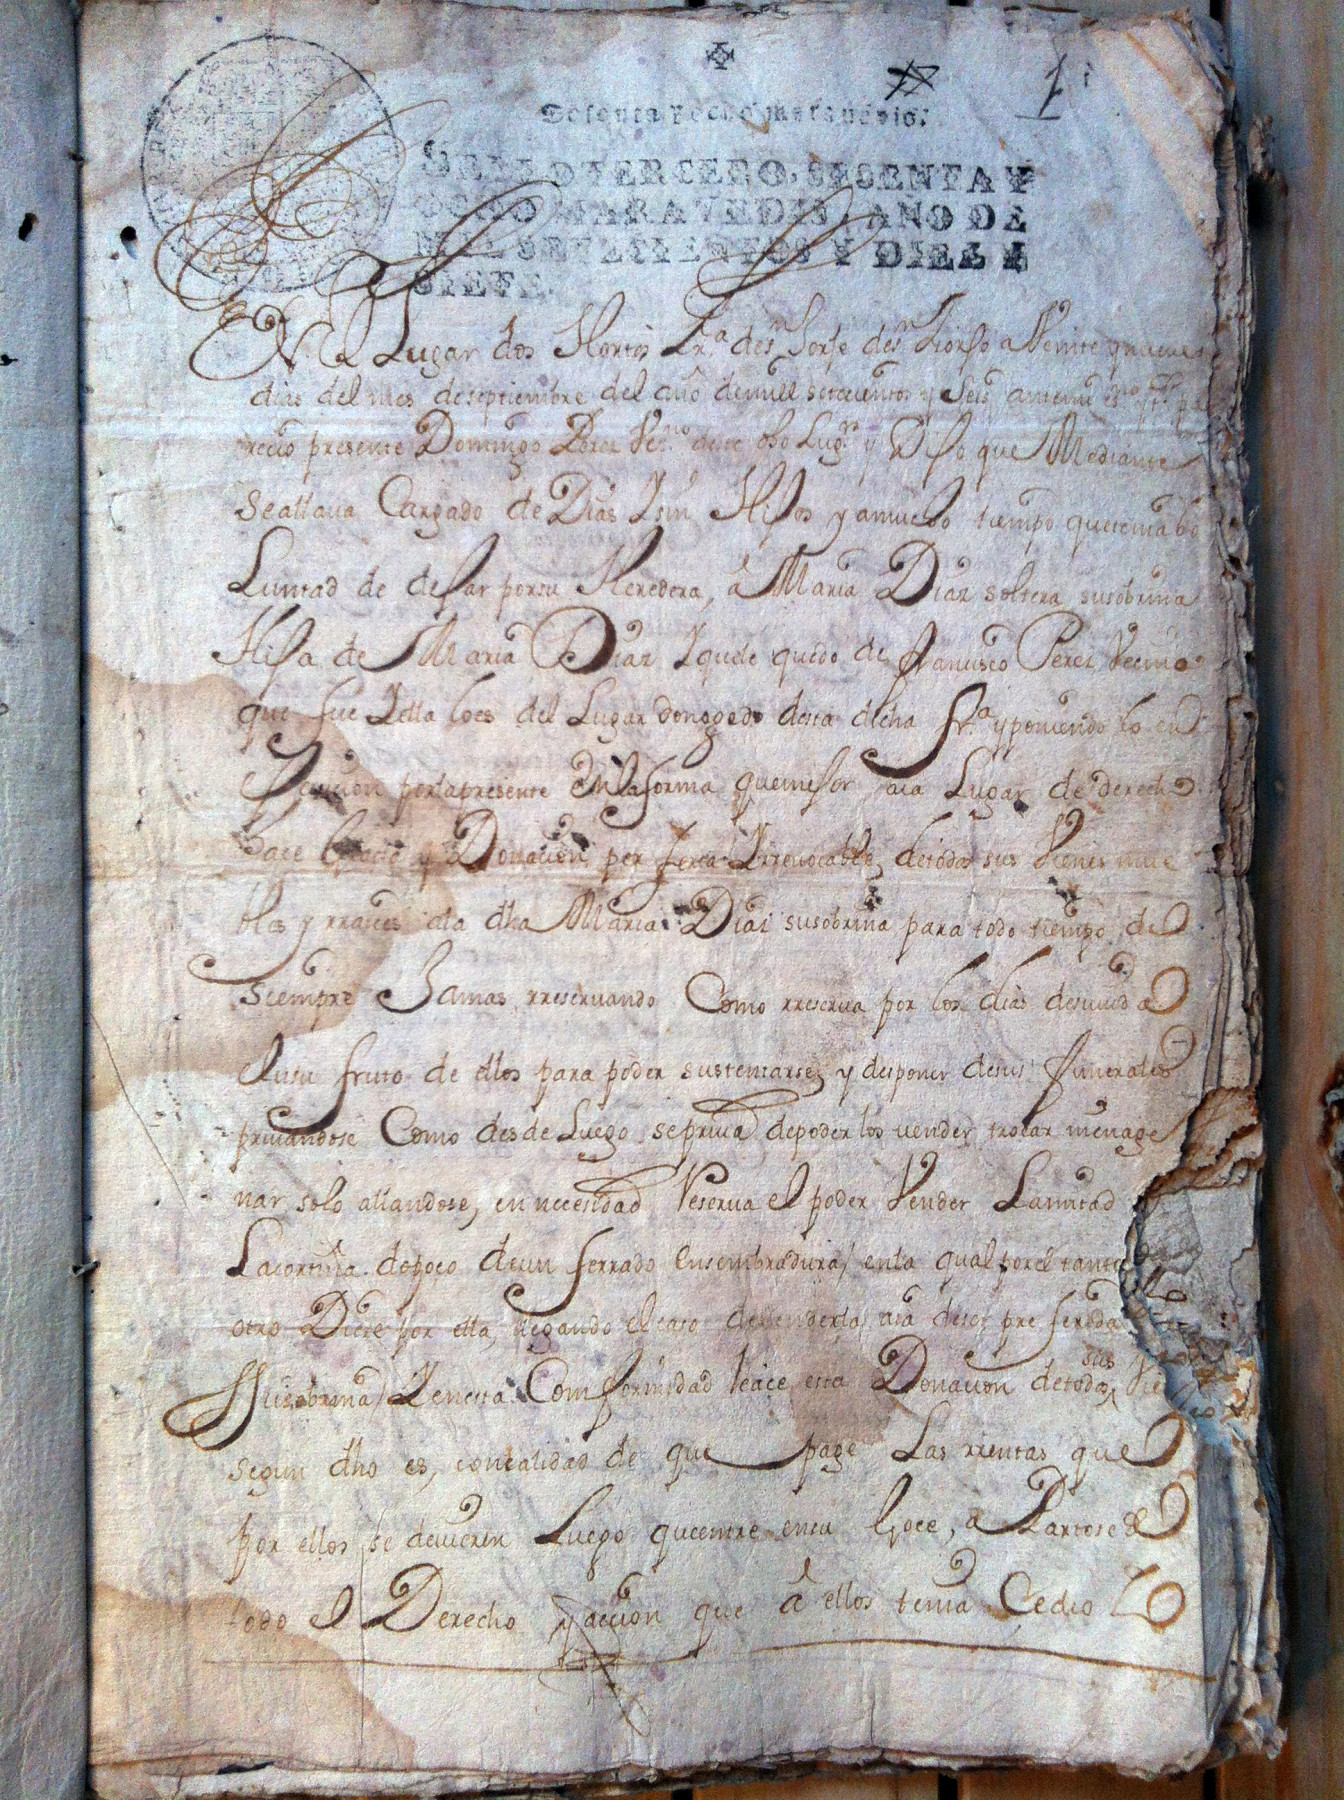 1
Sesenta y ocho maravedis.
SELLO TERCERO, SESENTA Y
OCHO MARAVEDIS, AÑO DE
MIL SETECIENTOS Y DIEZ Y
SIETE.
EN el Lugar dos Hortos fr.ª de sn Jorje de a Veinte y nueve
dias del mes de septiembre del año demill setecientos y Seis antemi esno pa
recio presente Domingo Perez Vezno deste dho Lugr y Dijo que Mediante
Seallaua Cargado de Dias Isin Hijos y amucho tiempo quetenia bo
Luntad de dejar porsu Heredera, á Maria Diaz soltera, susobrina
Hija de Maria Diaz Iquele quedo de franusco Perez Vecino
que fue Iella loes del Lugar desta dicha fr.ª y poniendolo en
ejecucion porlapresente Enlaforma quemejor aia Lugar de derecho
hace Gracia y Donacion per Irreuocable, detodos sus Vienes mue
bles y rraices ala dha Maria Diaz susobrina para todo tiempo de
Siempre Jamas, rreseruando Como rreserua por los dias desuuida
elusu fruto de ellos para poder sustentarse, y disponer desus funerales
priuandose Como desde Luego sepriua depoderlos vender, trocar nienage
nar solo allandose, en necesidad Reserua el poder Vender Lamitad
Lacortiña depoco deun ferrado Ensembradura, enla qual porel tanto
otro Diere por ella, llegando elcaso deVenderla, aia deser preferida
susobrina, Ienesta Comformidad hace esta Donacion detodos sus Vie
segun dho es, concalidad de que page Las rrentas que
por ellos se deuieren Luego queentre ensu Goce, a Partose de
todo el Derecho y accion que á ellos tenia Cedio Lo